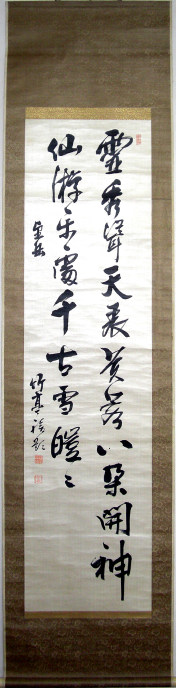 靈秀聳天表芙蓉八朶開神
仙游樂處千古雪皚々
竹亭